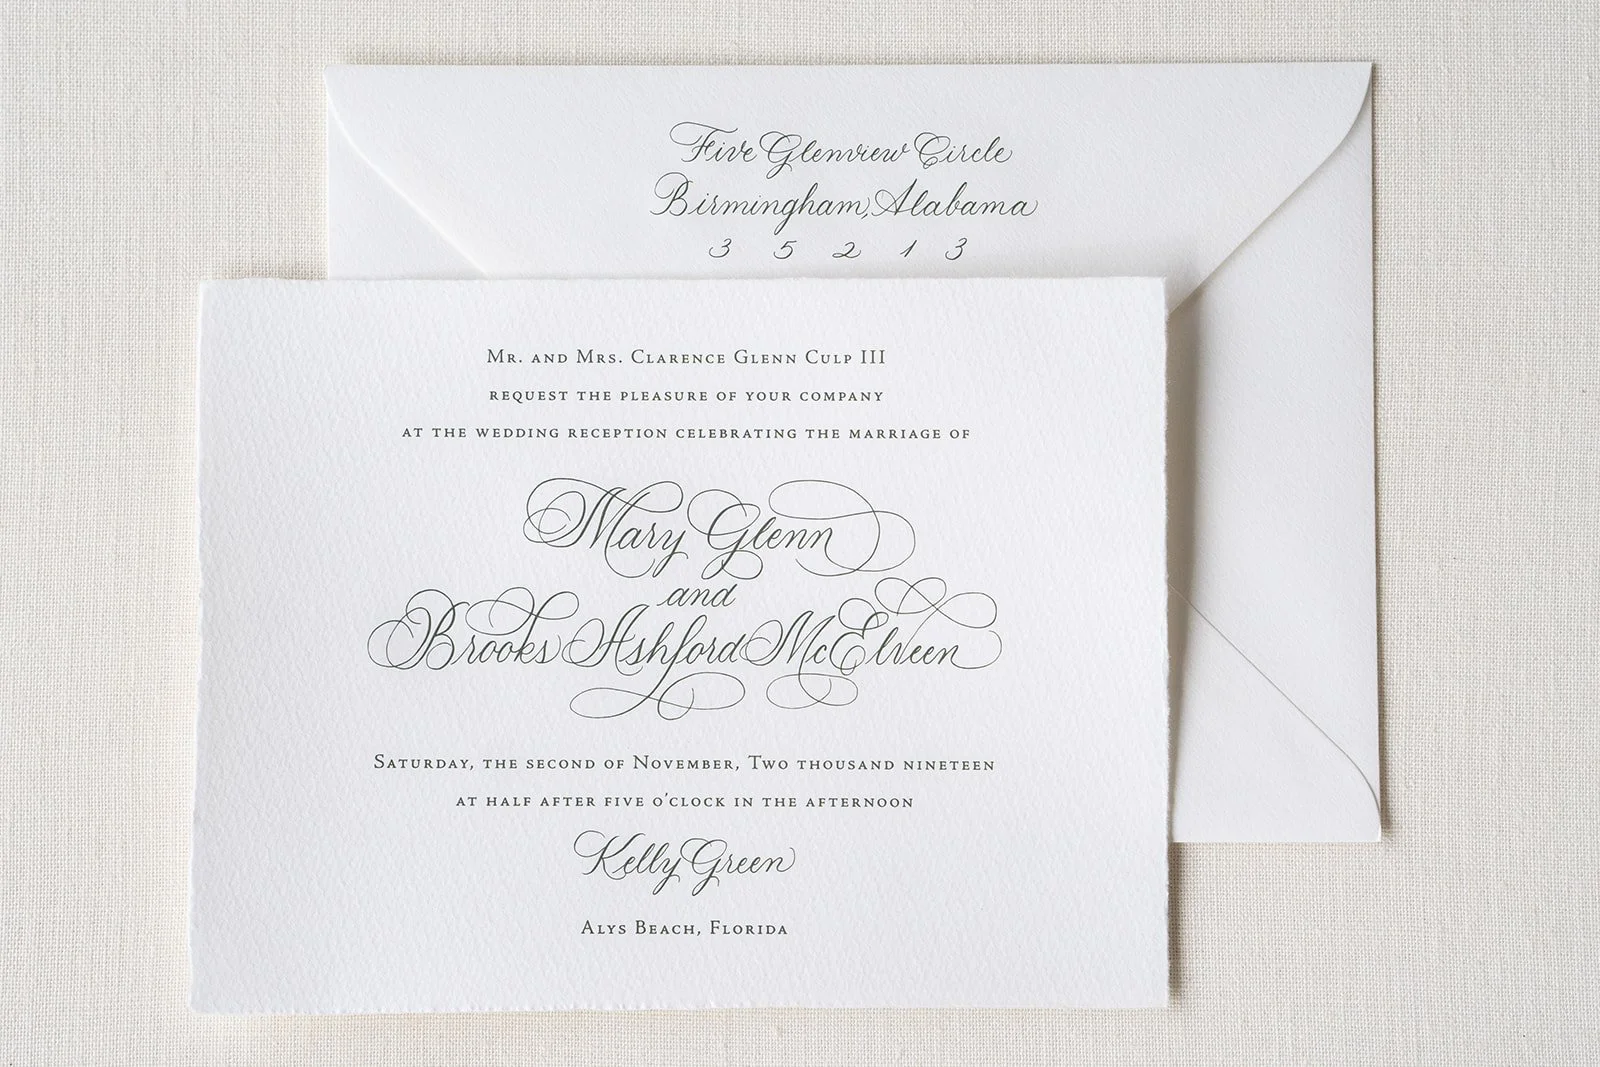 Five Glenview Circle
Birmingham, Alabama
3 5 2 1 3
Mr. and Mrs. Clarence Glenn Culp III
request the pleasure of your company
at the wedding reception celebrating the marriage of
Mary Glenn
and
Brooks Ashford McElveen
Saturday, the second of November, Two thousand nineteen
at half after five o'clock in the afternoon
Kelly Green
Alys Beach, Florida